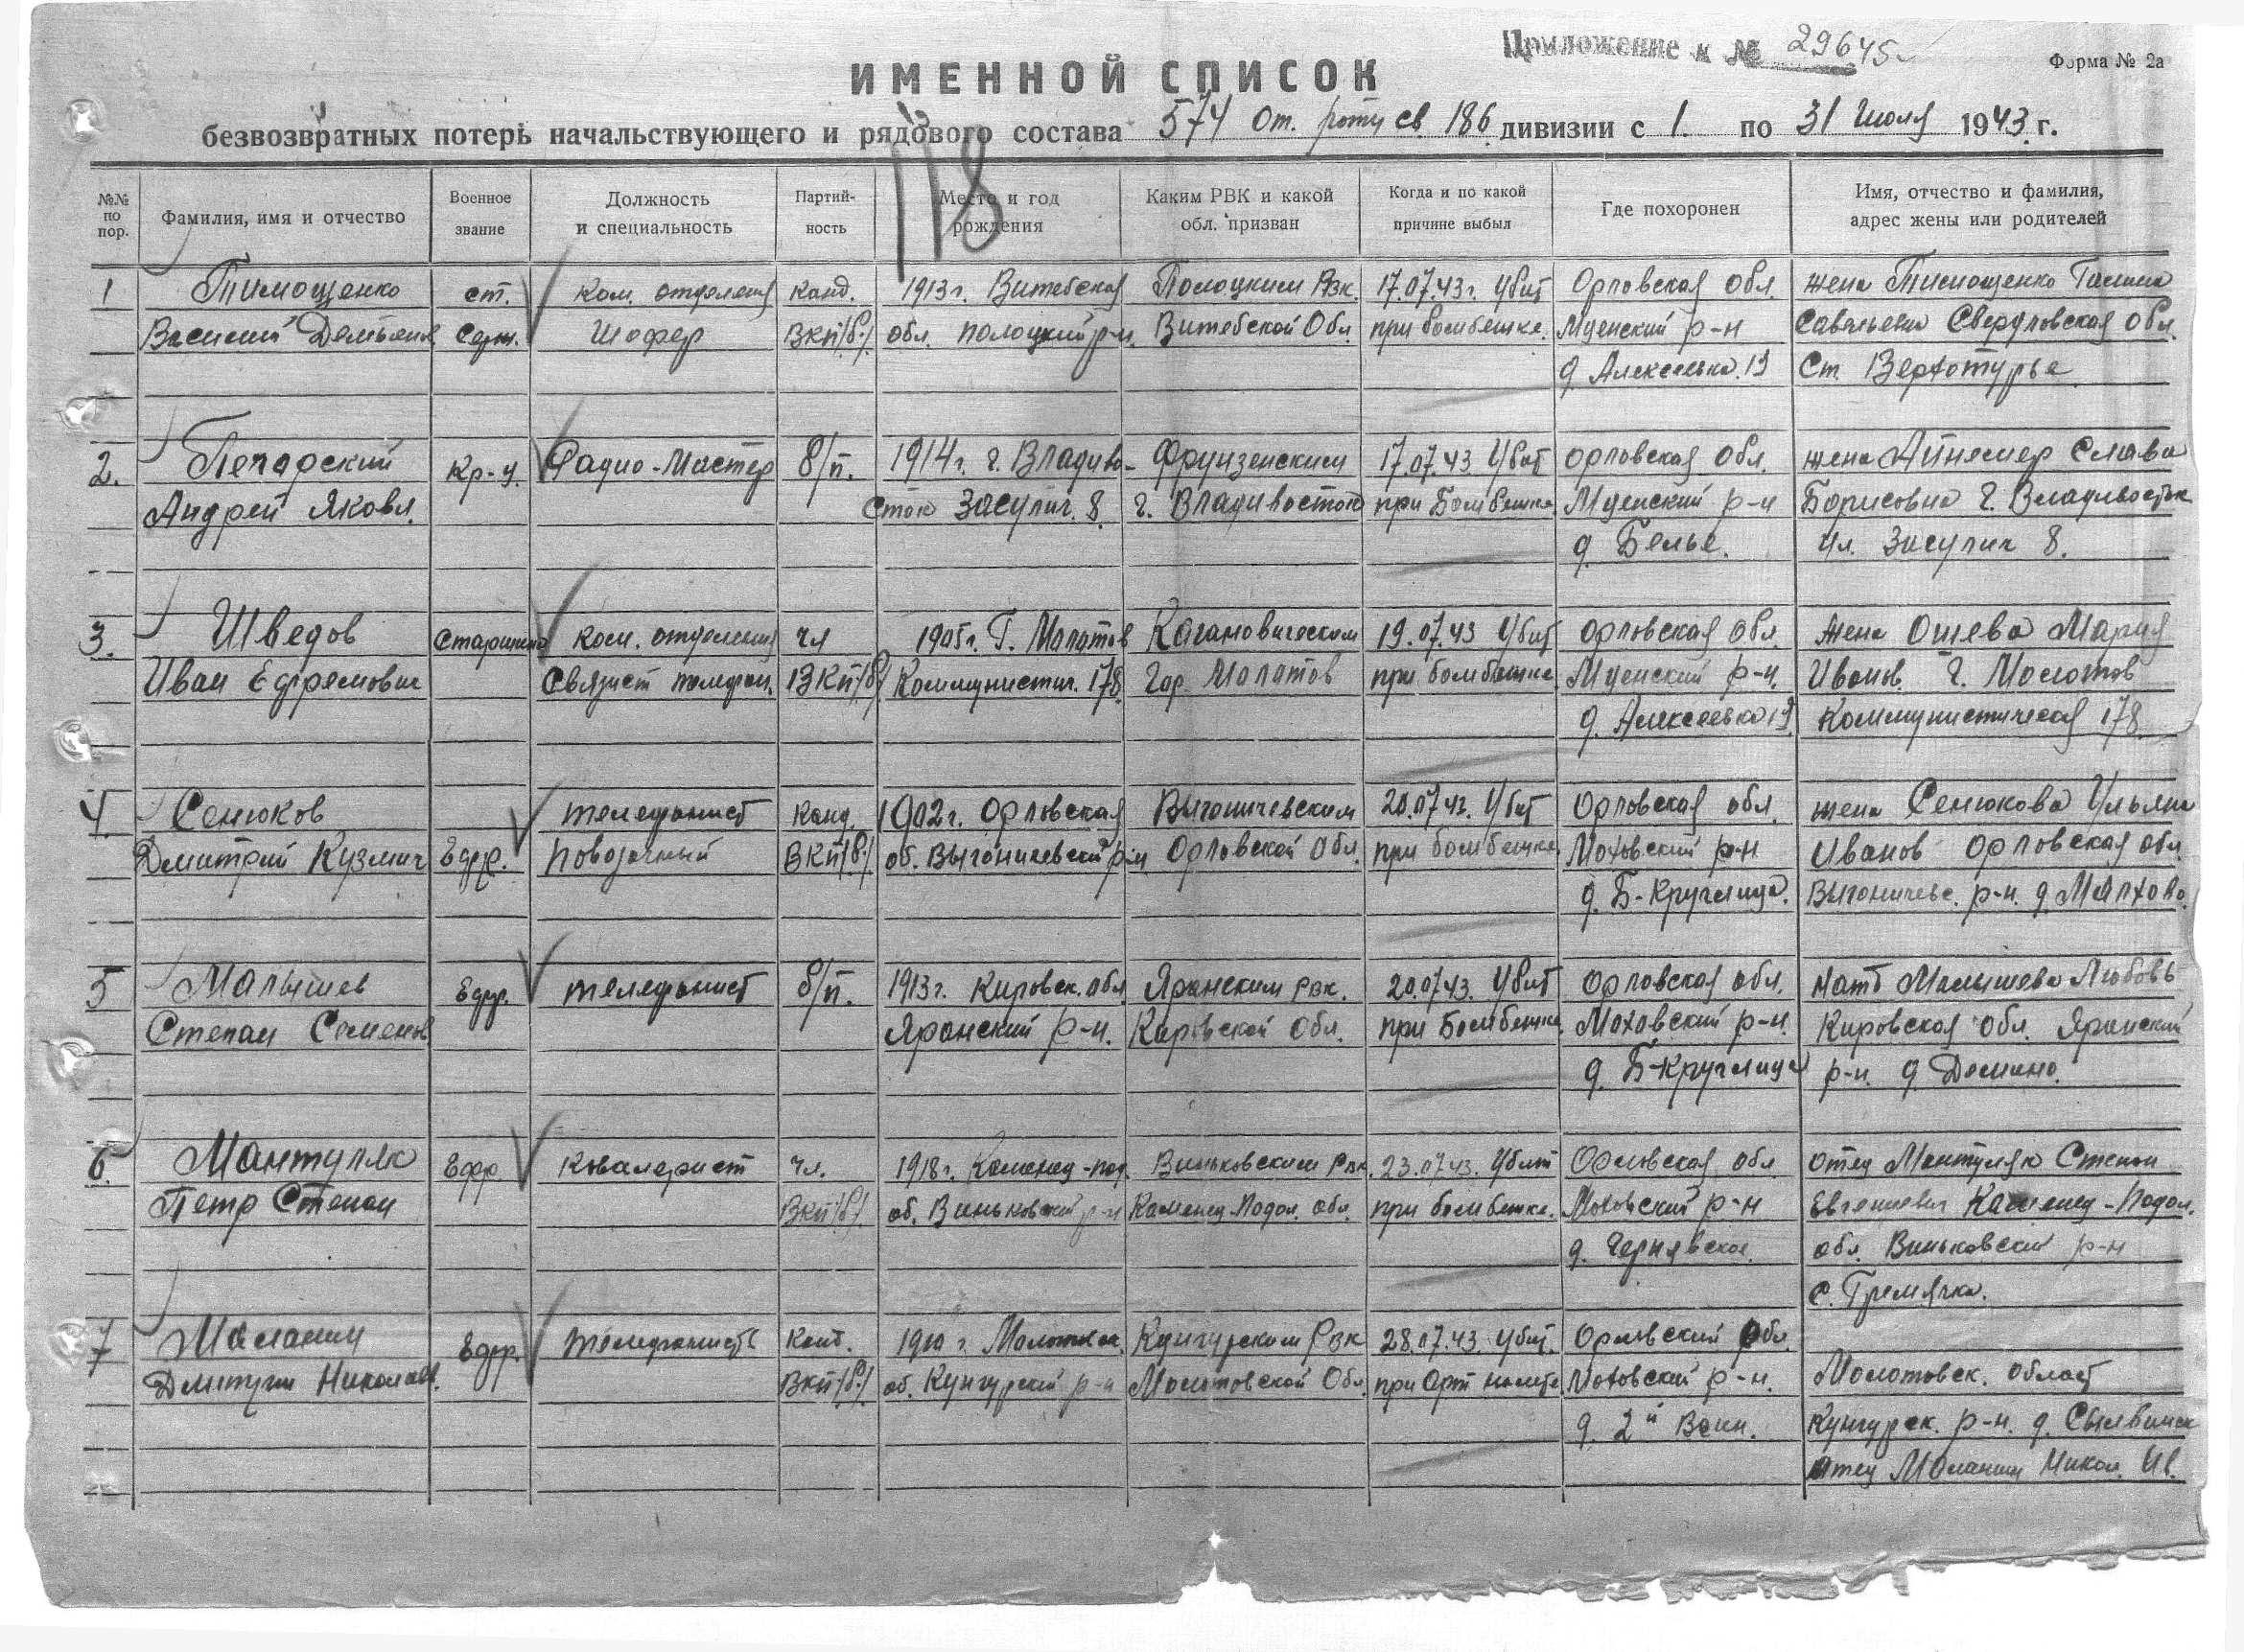 Приложение к № 29645
Форма № 2а
ИМЕННОЙ СПИСОК
безвозвратных потерь начальствующего и рядового состава 574 от. роты св 186 дивизии с 1. по 31 Июля 1943 г.
118
№№ по пор.
Фамилия, имя и отчество
Военное звание
Должность и специальность
Партийность
Место и год рождения
Каким РВК и какой обл. призван
Когда и по какой причине выбыл
Где похоронен
Имя, отчество и фамилия, адрес жены или родителей
1 Тимощенко ст. Ком. отделения Канд. 1913 г. Витебская Полоцким Рвк. 17.07.43 г. Убит Орловская Обл. жена Тимощенко Галина
Василий Демьянов Серж. Шофер ВКП/б/ обл. Полоцкий р-н. Витебской Обл. при бомбежке. Мценский р-н Савельевна Свердловская Обл.
д Алексеевка. 19 Ст. Верхотурье
2. Печарский Кр-ц. Радио-Мастер б/п. 1914 г. г. Владиво- Фрунзенским 17.07.43 Убит Орловская Обл. жена Слава
Андрей Яковл. сток Засулич. 8. г. Владивосток при Бомбежке Мценский р-н Борисовна г. Владивосток
д. Белье. ул. Засулич 8.
3. Шведов Старшина Ком. отделения чл 1905 г. Г. Молотов Кагановическим 19.07.43 Убит Орловская Обл. жена Ошева Мария
Иван Ефремович Связист телефон. ВКП/б/ Коммунистич. 178. Гор. Молотов при бомбежке. Мценский р-н. Иванов. г. Молотов
д. Алексеевка 19. Коммунистическая 178
4. Сенюков Телефонист Канд. 1902 г. Орловская Выгоничевским 20.07.43 г. Убит Орловская обл. жена Сенюкова Ульяна
Дмитрий Кузмич Ефр. Повозочный ВКП/б/ об. Выгоничевский р-н Орловской Обл. при бомбежке Моховский р-н Иванов Орловская обл.
д. Б-Круглица. Выгоничевс. р-н. д. Малхово.
5 Малышев Ефр. телефонист б/п. 1913 г. Кировск. обл. Яранским Рвк. 20.07.43. Убит Орловская обл. Мать Малышева Любовь
Степан Семенов Яранский р-н. Кировской Обл. при Бомбежке. Моховский р-н. Кировская обл. Яранский
д. Б-Круглица р-н. д Демино.
6. Мантуляк Ефр. Кавалерист чл. 1918 г. Каменец-под. Виньковским Рвк. 23.07.43. Убит Орловская обл отец Мантуляк Степан
Петр Степан ВКП/б/ об. Виньковский р-н Каменец Подол. обл. при бомбежке. Моховский р-н Евгениевич Каменец-Подол.
д. Чернявское обл. Виньковский р-н
с. Гремячка.
7 Маланин Ефр. телефонист Канд. 1910 г. Молотовск. Кунгурским Рвк 28.07.43. Убит. Орловский Обл.
Дмитрий Николаев. ВКП/б/ об. Кунгурский р-н Молотовской Обл. при Арт налете Моховский р-н. Молотовск. област
д. 2й Воин. Кунгурск. р-н. д. Сылвинск
отец Маланин Никол. Ив.